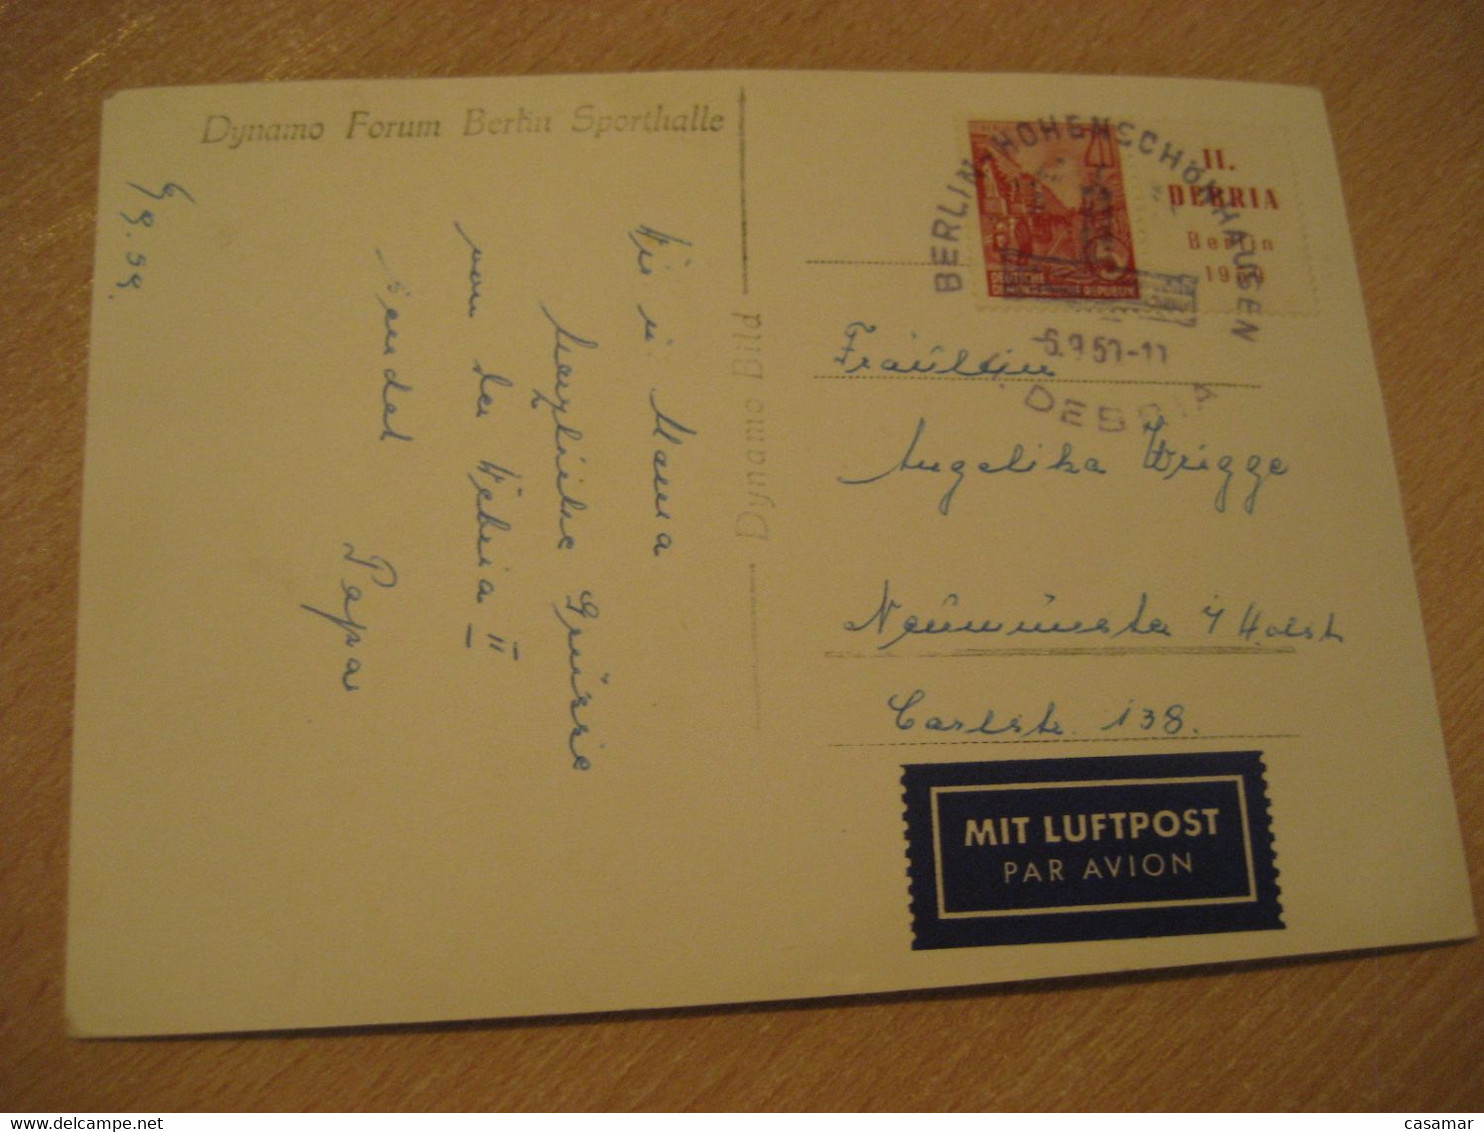 Dynamo Forum Berlin Sporthalle
6/9.59.
Dir u. Mama
herzliche Grüsse
von der Debria II
sendet
Papa
Dynamo Bild
BERLIN-HOHENSCHÖNHAUSEN
6.9.59-11
DEBRIA
DEUTSCHE
DEMOKRATISCHE REPUBLIK
5
II.
DEBRIA
Berlin
1959
Fräulein
Angelika Wrigge
Neümünster i/Holst
Carlstr. 138.
MIT LUFTPOST
PAR AVION
casamar